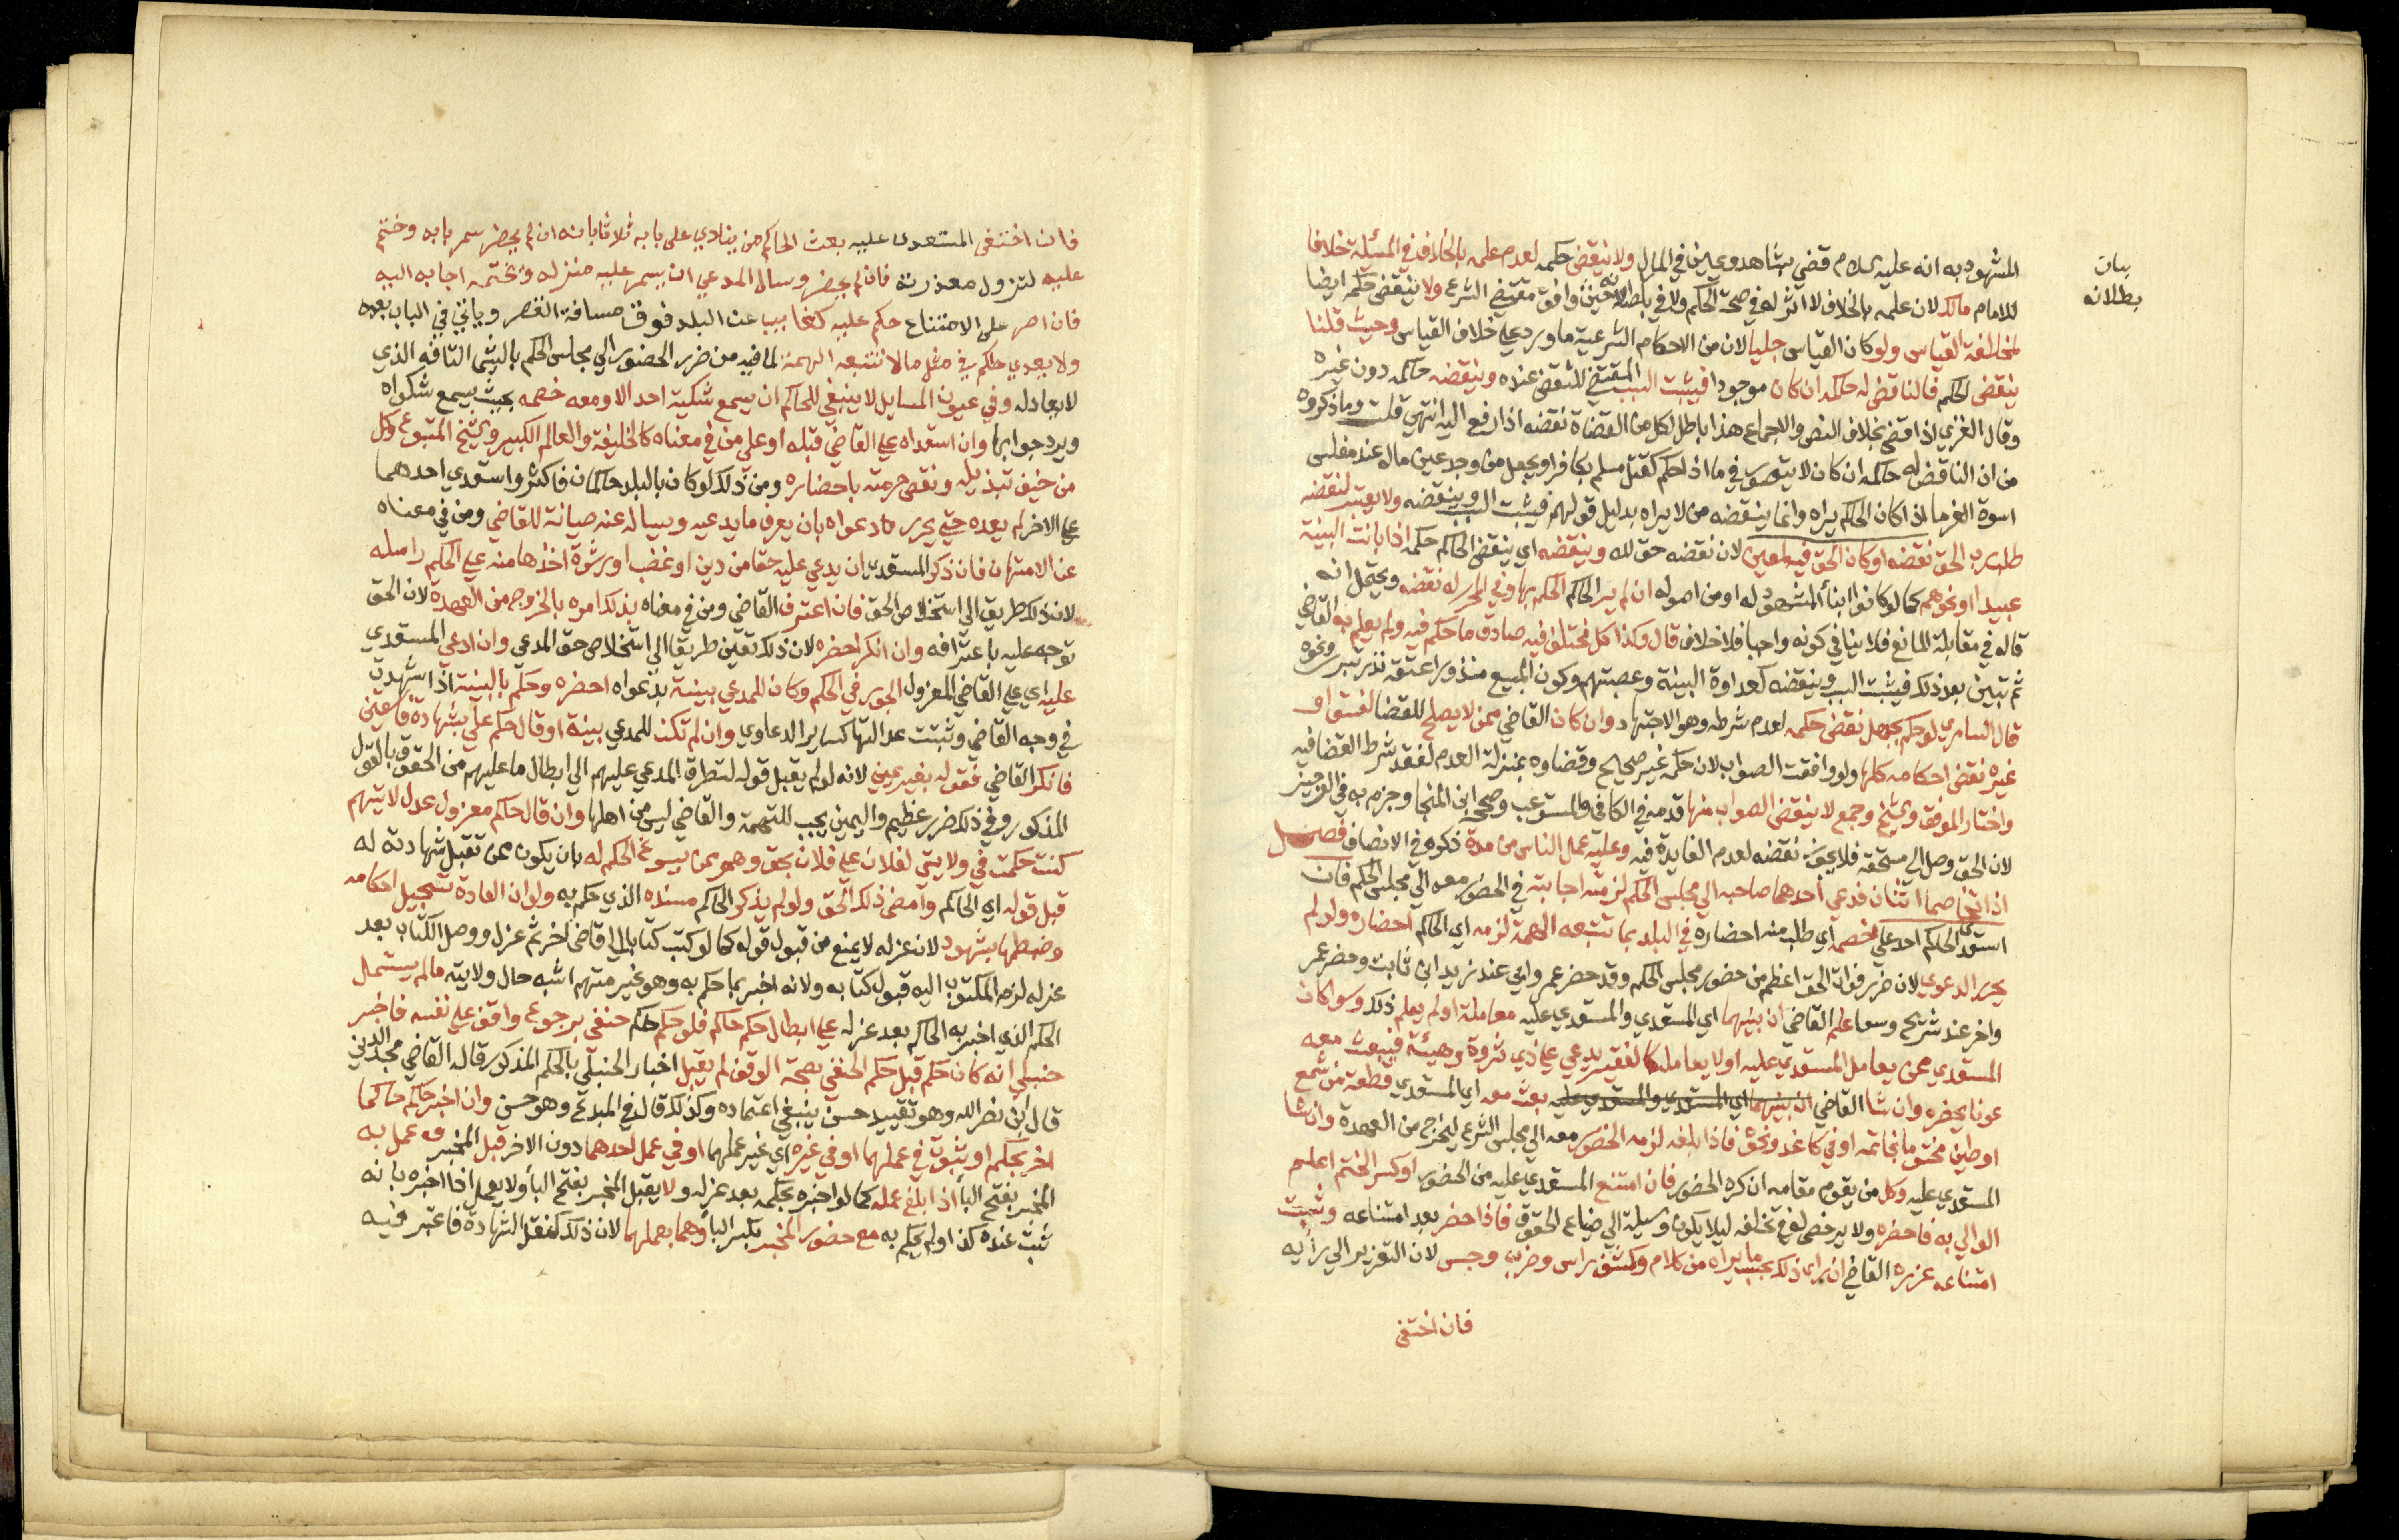 المشهود به انه عليه السلام قضى بشاهد ويمين في المال ولا ينقض حكمه لعدم علمه بالخلاف في المسئلة خلافا
للامام مالك لان علمه بالخلاف لا اثر له في صحة الحكم ولا في بطلانه حيث وافق مقتضى الشرع ولا ينقض حكمه ايضا
لمخالفة القياس ولو كان القياس جليا لان من الاحكام الشرعية ما ورد على خلاف القياس وحيث قلنا
ينقض الحكم فالناقض له حاكمه ان كان موجودا فيثبت السبب المقتضي للنقض عنده وينقضه حاكمه دون غيره
وقال الغزي اذا قضى بخلاف النص والاجماع هذا باطل لكل من القضاة نقضه اذا رفع اليه انتهى قلت وما ذكروه
من ان الناقض له حاكمه ان كان لا يتصور في ما اذا حكم بقتل مسلم بكافر او بجعل من وجد عين ماله عند مفلس
اسوة الغرما اذا كان الحاكم يراه وانما ينقضه من لا يراه بدليل قولهم فيثبت السبب وينقضه ولا يعتبر لنقضه
طلب رب الحق نقضه او كان الحق فيه لمعين لان نقضه حق لله وينقضه اي ينقض الحاكم حكمه اذا بانت البينة
عبيدا او نحوهم كما لو كانوا ابنا المشهود له او من اصوله ان لم ير الحاكم الحكم بها وفي المحرر له نقضه ويحتمل انه
قاله في مقابلة المانع فلا ينافي كونه واجبا فلا خلاف قال وكذا كل مختلف فيه صادف ما حكم فيه ولم يعلم به القاضي
ثم تبين بعد ذلك فيثبت السبب وينقضه كعداوة البينة وعصبتهم وكون المبيع منذورا عتقه نذر تبرر ونحوه
قال السامري لو حكم بجهل نقض حكمه لعدم شرطه وهو الاجتهاد وان كان القاضي ممن لا يصلح للقضا لفسق او
غيره نقض احكامه كلها ولو وافقت الصواب لان حكمه غير صحيح وقضاوه بمنزلة العدم لفقد شرط القضا فيه
واختار الموفق والشيخ وجمع لا ينقض الصواب منها قدمه في الكافي والمستوعب وصححه ابن المنجا وجزم به في الوجيز
لان الحق وصل الى مستحقه فلا يجوز نقضه لعدم الفايدة فيه وعليه عمل الناس من مدة ذكره في الانصاف فصل
اذا تخاصما اثنان فدعى احدهما صاحبه الى مجلس الحكم لزمته اجابته في الحضور معه الى مجلس الحكم فان
استعدى الحاكم احد على خصمه اي طلب منه احضاره في البلد بما تتبعه الهمة لزمه اي الحاكم احضاره ولو لم
يحرر الدعوي لان ضرر فوات الحق اعظم من حضور مجلس الحكم وقد حضر عمر وابي عند زيد ابن ثابت وحضر عمر
واخر عند شريح وسوا علم القاضي ان بينهما اي المستعدي والمستعدي عليه معاملة او لم يعلم ذلك وسوا كان
المستعدي ممن يعامل المستعدي عليه او لا يعامله كالفقير يدعي على ذي ثروة وهيئة فيبعث معه
عونا يحضره وان شا القاضي ان بينهما اي المستعدي والمستعدي عليه بعث معه اي المستعدي قطعة من شمع
او طين مختوما بخاتمه او في كاغد ونحوه فاذا بلغه لزمه الحضور معه الى مجلس الشرع ليخرج من العهدة وان شا
المستعدي عليه وكل من يقوم مقامه ان كره الحضور فان امتنع المستعدي عليه من الحضور او كسر الختم اعلم
الوالي به فاحضره ولا يرخص له في تخلفه ليلا يكون وسيلة الى ضياع الحقوق فاذا حضر بعد امتناعه وثبت
امتناعه عزره القاضي ان راى ذلك بحسب ما يراه من كلام وكشف راس وضرب وحبس لان التعزير الى رايه
فان اختفى
بيان
بطلانه
فان اختفى المستعدى عليه بعث الحاكم من ينادي على بابه ثلاثا بانه ان لم يحضر سمر بابه وختم
عليه لتزول معذرته فان لم يحضر وسال المدعي ان يسمر عليه منزله ويختمه اجابه اليه
فان اصر على الامتناع حكم عليه كغايب عن البلد فوق مسافة القصر وياتي في الباب بعده
ولا يعدي حاكم في مثل ما لا تتبعه الهمة لما فيه من ضرر الحضور الى مجلس الحكم بالشيء التافه الذي
لا يعادله وفي عيون المسايل لا ينبغي للحاكم ان يسمع شكية احد الا ومعه خصمه بحيث يسمع شكواه
ويرد جوابها وان استعداه على القاضي قبله او على من في معناه كالخليفة والعالم الكبير والشيخ المتبوع وكل
من خيف تبذيله ونقص حرمته باحضاره ومن ذلك لو كان بالبلد حاكمان فاكثر واستعدي احدهما
على الاخر لم يعده حتى يحرر دعواه بان يعرف ما يدعيه ويساله عنه صيانة للقاضي ومن في معناه
عن الامتهان فان ذكر المستعدي ان يدعي عليه حقا من دين او غصب او رشوة اخذها منه على الحكم راسله
لان ذلك طريق الى استخلاص الحق فان اعترف القاضي ومن في معناه بذلك امره بالخروج من العهدة لان الحق
توجه عليه باعترافه وان انكر احضره لان ذلك تعين طريقا الى استخلاص حق المدعي وان ادعي المستعدي
عليه اي على القاضي المعزول الجور في الحكم وكان للمدعي بينة بدعواه احضره وحكم بالبينة اذا شهدت
في وجه القاضي وثبتت عدالتها كساير الدعاوي وان لم تكن للمدعي بينة او قال حكم علي بشهادة فاسقين
فانكر القاضي فقوله بغير يمين لانه لو لم يقبل قوله لتطرق المدعي عليهم الى ابطال ما عليهم من الحقوق بالقول
المذكور وفي ذلك ضرر عظيم واليمين يجب للتهمة والقاضي ليس من اهلها وان قال حاكم معزول عدل لا يتهم
كنت حكمت في ولايتي لفلان على فلان بحق وهو ممن يسوغ الحكم له بان يكون ممن تقبل شهادته له
قبل قوله اي الحاكم وامضى ذلك الحق ولو لم يذكر الحاكم مسنده الذي حكم به ولو ان العادة تسجيل احكامه
وضبطها بشهود لان عزله لا يمنع من قبول قوله كما لو كتب كتابا الى قاضي اخر ثم عزل ووصل الكتاب بعد
عزله لزم المكتوب اليه قبول كتابه ولانه اخبر بما حكم به وهو غير متهم اشبه حال ولايته ما لم يشتمل
الحكم الذي اخبر به الحاكم بعد عزله على ابطال حكم حاكم فلو حكم حاكم حنفي برجوع واقف على نفسه فاخبر
حنبلي انه كان حكم قبل حكم الحنفي بصحة الوقف لم يقبل اخبار الحنبلي بالحكم المذكور قاله القاضي مجد الدين
قال ابن نصر الله وهو تقييد حسن ينبغي اعتماده وكذلك قال في المبدع وهو حسن وان اخبر حاكم حاكما
اخر بحكم او ثبوت في عملهما او في غيره اي غير عملهما او في عمل احدهما دون الاخر قبل المخبر وعمل به
المخبر بفتح البا اذا بلغ عمله كما لو اخبره بحكمه بعد عزله ولا يقبل المخبر بفتح البا ولا يعمل اذا اخبره بانه
ثبت عنده كذا ولم يحكم به مع حضور المخبر بكسر البا وهما بعملهما لان ذلك كنقل الشهادة فاعتبر فيه